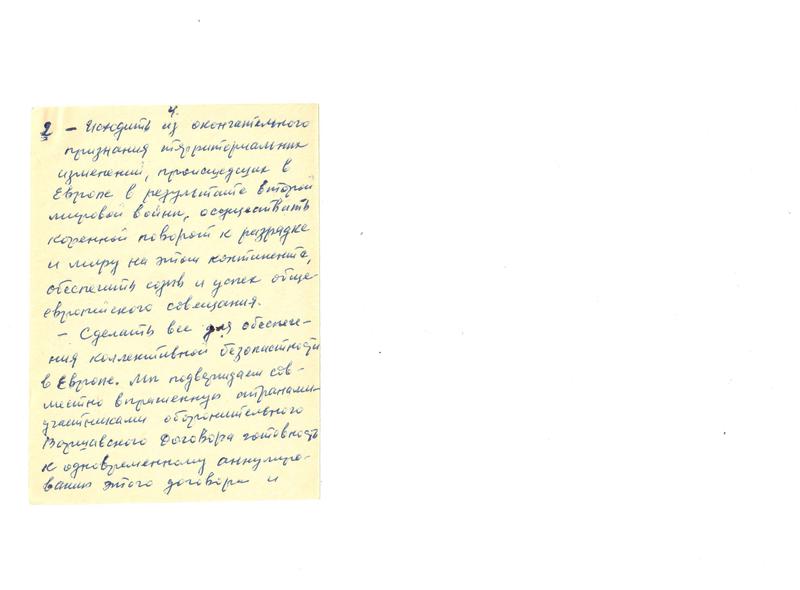 4.
2 – Исходить из окончательного
признания территориальных
изменений, происшедших в
Европе в результате второй
мировой войны, осуществить
коренной поворот к разрядке
и миру на этом континенте,
обеспечить созыв и успех обще-
европейского совещания.
– Сделать все для обеспече-
ния коллективной безопасности
в Европе. Мы подтверждаем сов-
местно выраженную странами-
участниками оборонительного
Варшавского Договора готовность
к одновременному аннулиро-
ванию этого договора и